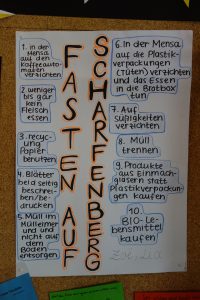 FASTEN AUF
SCHARFENBERG
1. in der
Mensa
auf den
Kaffeeauto-
maten
verzichten
2. weniger
bis gar
kein
Fleisch
essen
3. recycling
Papier
benutzen
4. Blätter
beidseitig
beschrei-
ben/be-
drucken
5. Müll im
Mülleimer
und und
nicht auf
dem
Boden
entsorgen
6. In der Mensa
auf die Plastik-
verpackungen
(Tüten) verzichten
und das Essen
in die Brotbox
tun
7. Auf
Süßigkeiten
verzichten
8. Müll
trennen
9. Produkte
aus Einmach-
gläsern statt
Plastikverpack-
ungen kaufen
10.
BIO-Le-
bensmittel
kaufen